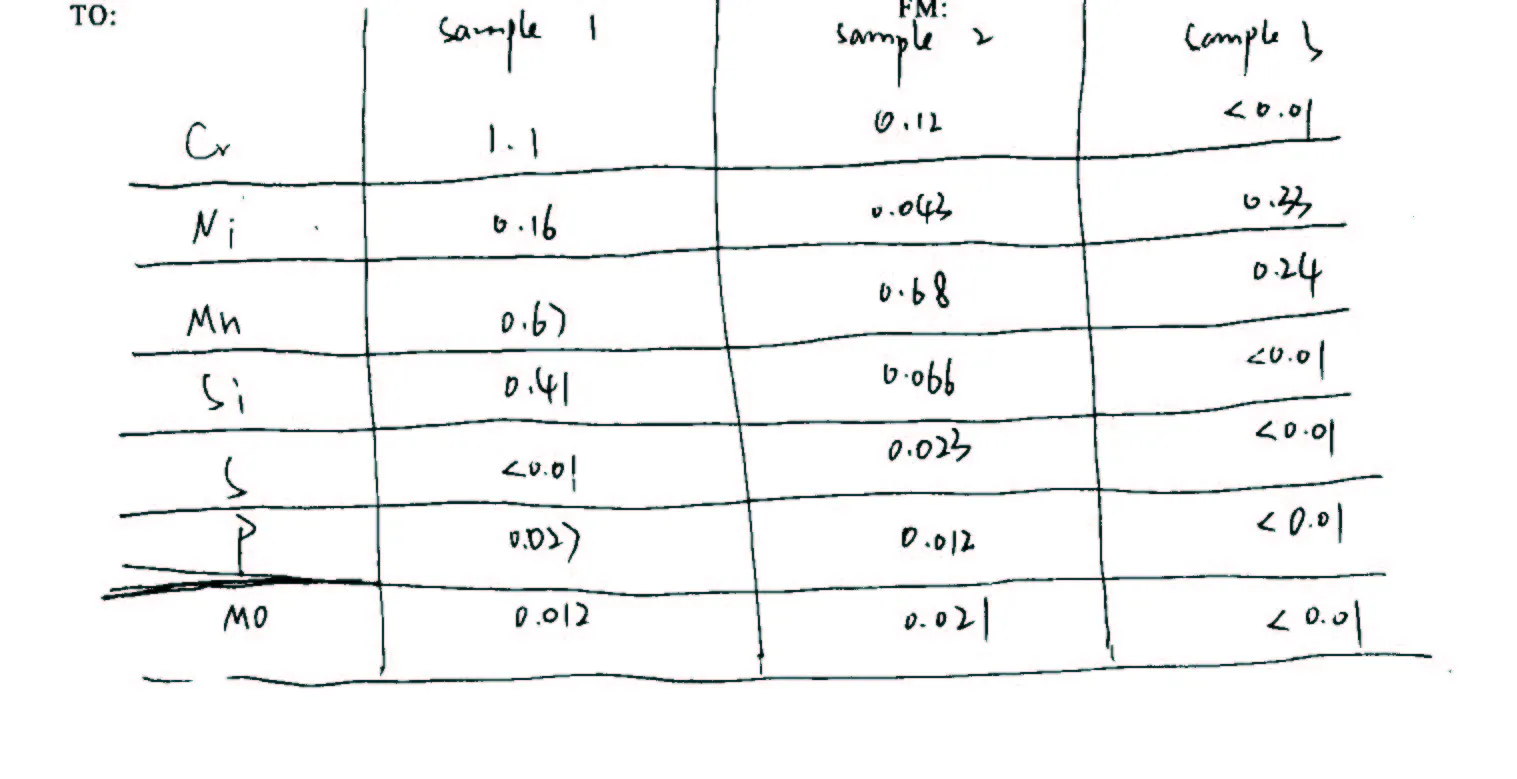 TO: FM:
Sample 1 Sample 2 Sample 3
Cr 1.1 0.12 <0.01
Ni 0.16 0.043 0.33
Mn 0.67 0.68 0.24
Si 0.41 0.066 <0.01
S <0.01 0.023 <0.01
P 0.027 0.012 <0.01
MO 0.012 0.021 <0.01